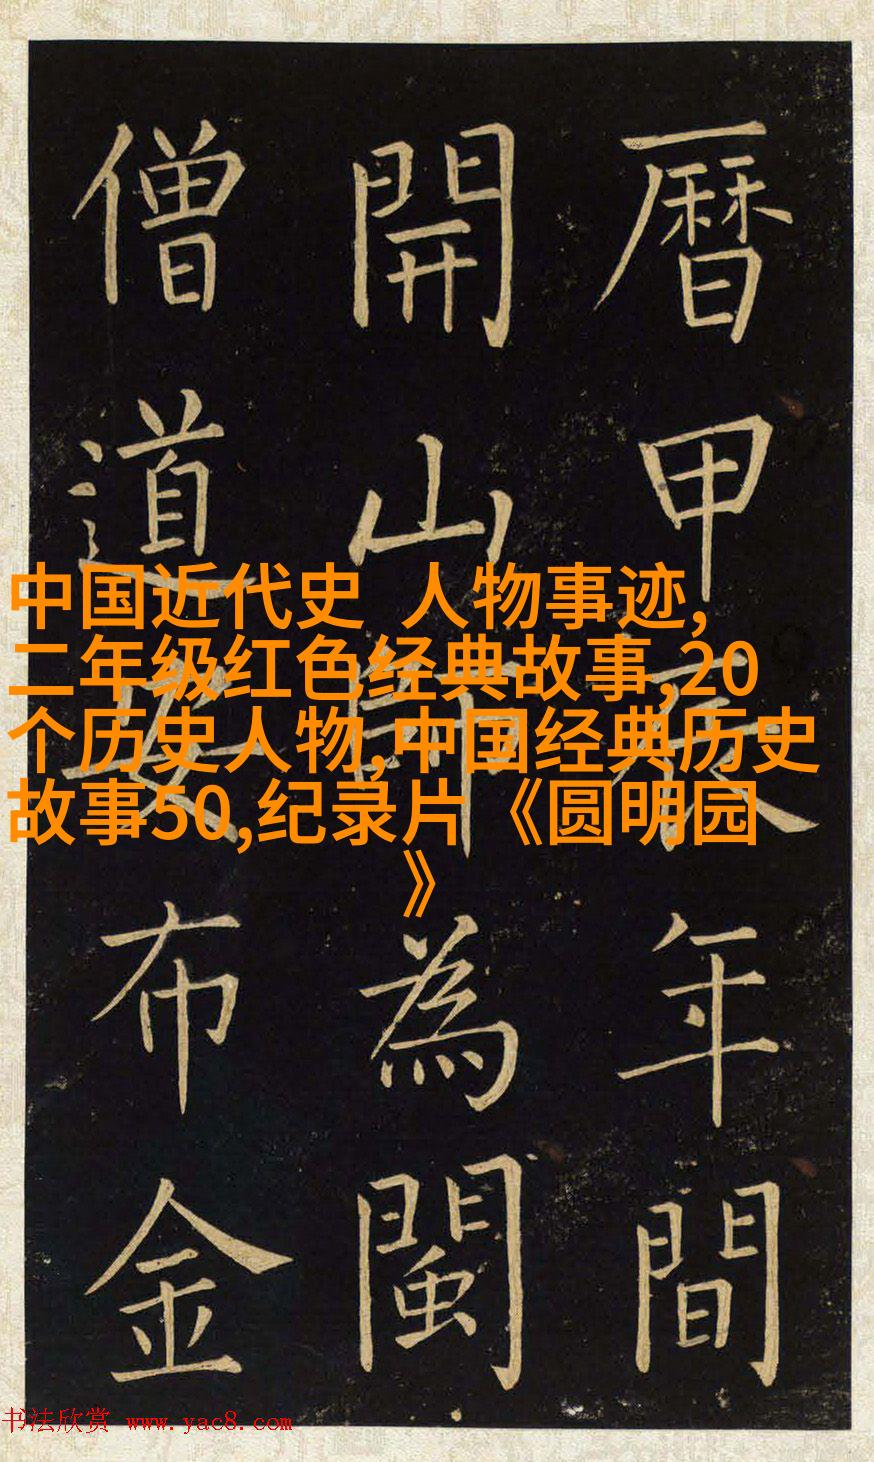 曆甲辰年間
開山師為閩
僧道安布金
中国近代史 人物事迹,
二年级红色经典故事,20
个历史人物,中国经典历史
故事50,纪录片《圆明园
》
书法欣赏 www.yac8.com